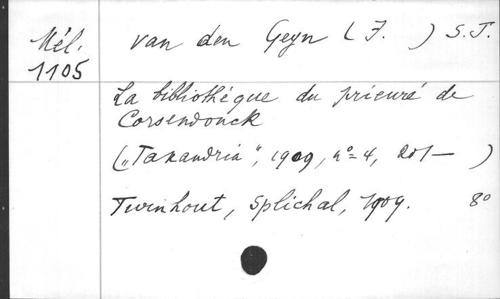 Mél.
1105
van den Geyn (J. ) S.J.
La bibliothéque du prieuré de
Corsendonck
(„Taxandria", 1909, nº 4, 201— )
Turnhout, Splichal, 1909. 8º